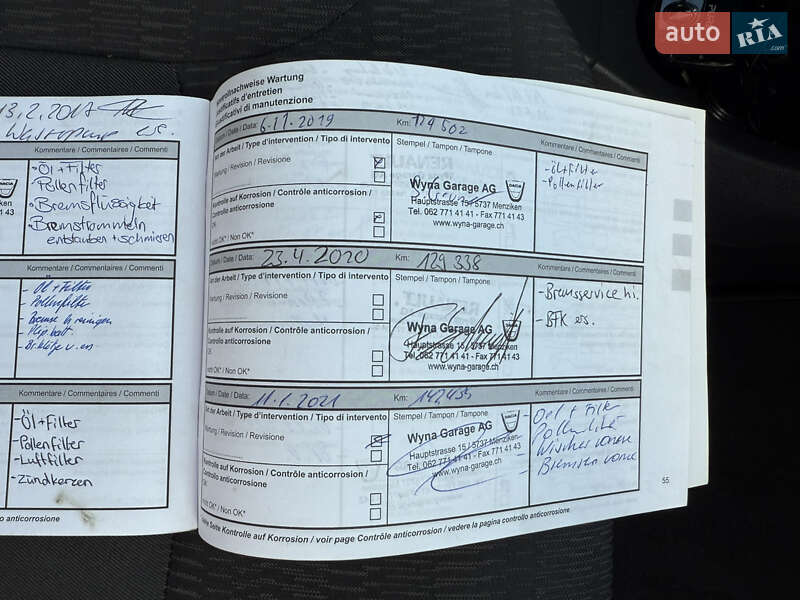 auto RIA.com
13.2.2017
Kommentare / Commentaires / Commenti
- Öl + Filter
Pollenfilter
- Bremsflüssigkeit
- Bremstrommeln
entstauben + schmieren
DACIA
ziken
1 43
Kommentare / Commentaires / Commenti
Öl + Filter
- Pollenfilter
Kommentare / Commentaires / Commenti
- Öl + Filter
- Pollenfilter
- Luftfilter
- Zündkerzen
o anticorrosione
ontrollnachweise Wartung
stificatifs d'entretien
ustificativi di manutenzione
Datum / Date / Data: 6.11.2019
Km: 124 502
Art der Arbeit / Type d'intervention / Tipo di intervento
Stempel / Tampon / Tampone
Kommentare / Commentaires / Commenti
Wartung / Revision / Revisione
Kontrolle auf Korrosion / Contrôle anticorrosion /
Controllo anticorrosione
OK
nicht OK* / Non OK*
Wyna Garage AG
Hauptstrasse 15 / 5737 Menziken
Tel. 062 771 41 41 - Fax 771 41 43
www.wyna-garage.ch
DACIA
- Öl + Filter
- Pollenfilter
Datum / Date / Data: 23.4.2020
Km: 129 338
Art der Arbeit / Type d'intervention / Tipo di intervento
Stempel / Tampon / Tampone
Kommentare / Commentaires / Commenti
Wartung / Revision / Revisione
Kontrolle auf Korrosion / Contrôle anticorrosion /
Controllo anticorrosione
OK
nicht OK* / Non OK*
Wyna Garage AG
Hauptstrasse 15 / 5737 Menziken
Tel. 062 771 41 41 - Fax 771 41 43
www.wyna-garage.ch
- Bremsservice hi.
- BFK ers.
Datum / Date / Data: 11.1.2021
Km: 142435
Art der Arbeit / Type d'intervention / Tipo di intervento
Stempel / Tampon / Tampone
Kommentare / Commentaires / Commenti
Wartung / Revision / Revisione
Kontrolle auf Korrosion / Contrôle anticorrosion /
Controllo anticorrosione
OK
nicht OK* / Non OK*
Wyna Garage AG
Hauptstrasse 15 / 5737 Menziken
Tel. 062 771 41 41 - Fax 771 41 43
www.wyna-garage.ch
- Oel + Filter
- Pollenfilter
- Wischer vorne
- Bremsen vorne
55
*siehe Seite Kontrolle auf Korrosion / voir page Contrôle anticorrosion / vedere la pagina controllo anticorrosione